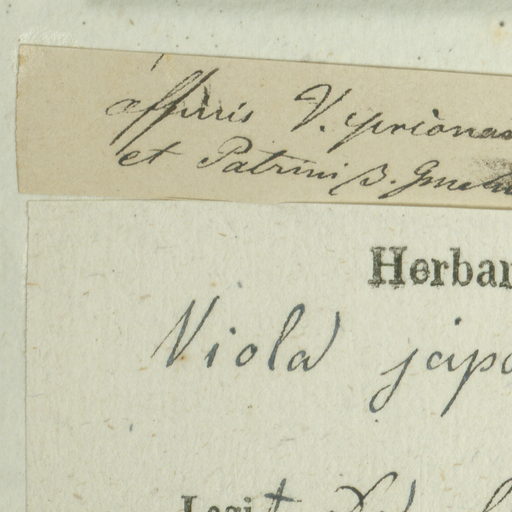 affinis V. priona
et Patrini β. Gmelin
Herbar
Viola japo
Legit